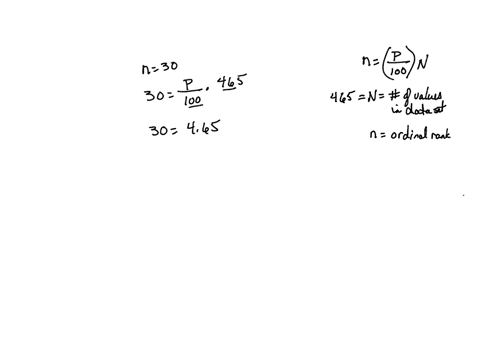 n=30
30 = P/100 · 465
30 = 4.65
n = (P/100) N
465 = N = # of values
in data set
n = ordinal rank